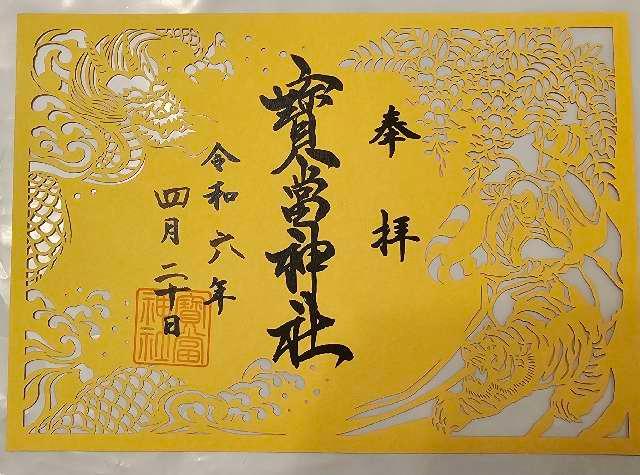 奉拝
寳當神社
令和六年
四月二十日
寳當
神社